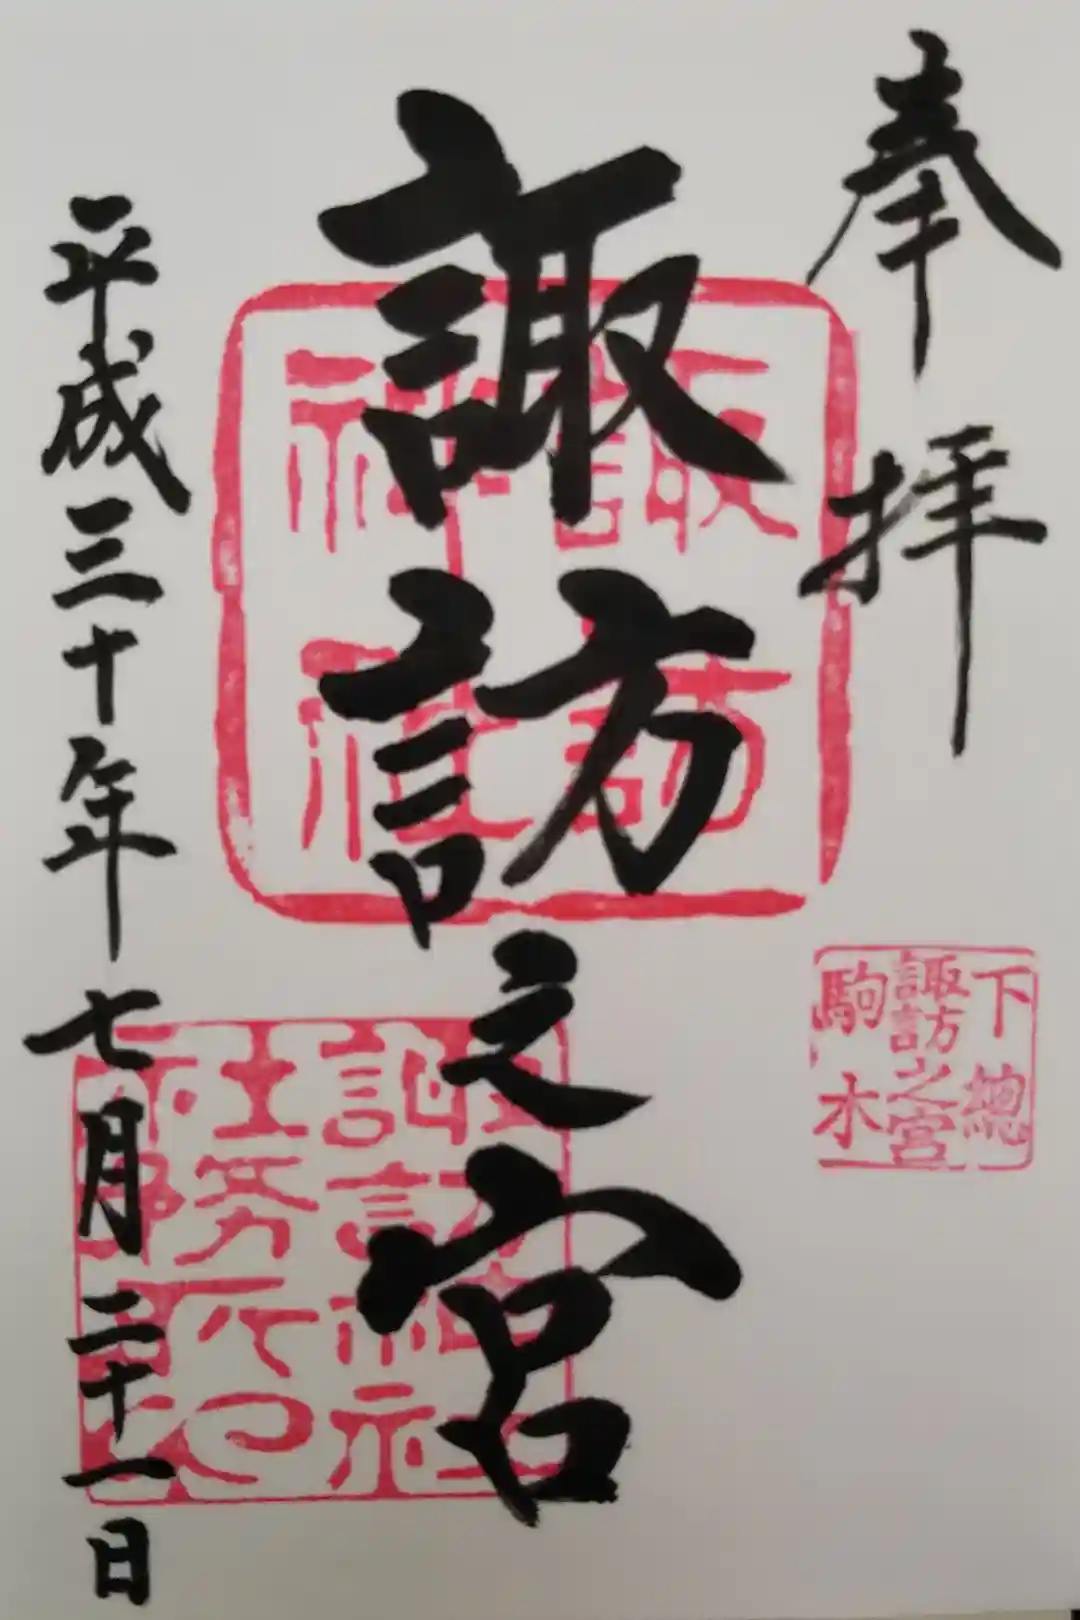 奉拝
下總
諏訪之宮
駒木
諏訪之宮
諏訪
神社
平成三十年七月二十一日